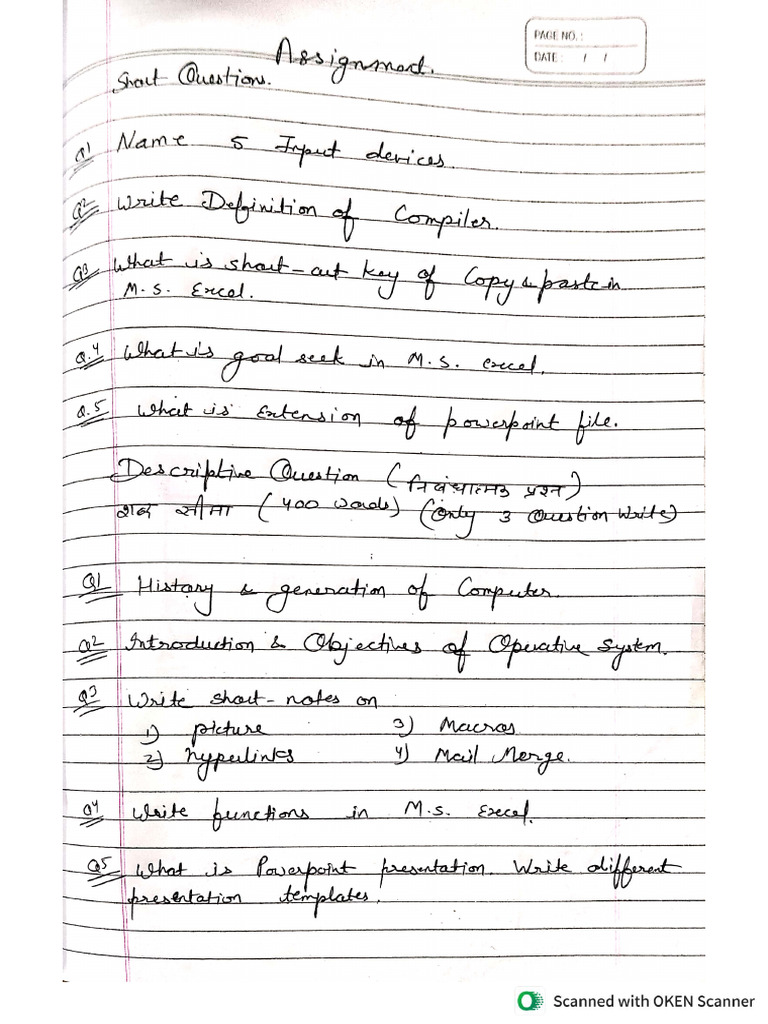 PAGE NO. :
DATE : / /
Assignment.
Short Questions.
Q1 Name 5 Input devices.
Q2 Write Definition of Compiler.
Q3 What is short-cut key of Copy & paste in
M.S. Excel.
Q.4 What is goal seek in M.S. excel.
Q.5 What is Extension of powerpoint file.
Descriptive Question (निबंधात्मक प्रश्न)
शब्द सीमा (400 words) (Only 3 Question Write)
Q1 History & generation of Computer.
Q2 Introduction & Objectives of Operative System.
Q3 Write short-notes on
1) picture 3) Macros
2) hyperlinks 4) Mail Merge.
Q4 Write functions in M.S. Excel.
Q5 What is Powerpoint presentation. Write different
presentation templates.
Scanned with OKEN Scanner